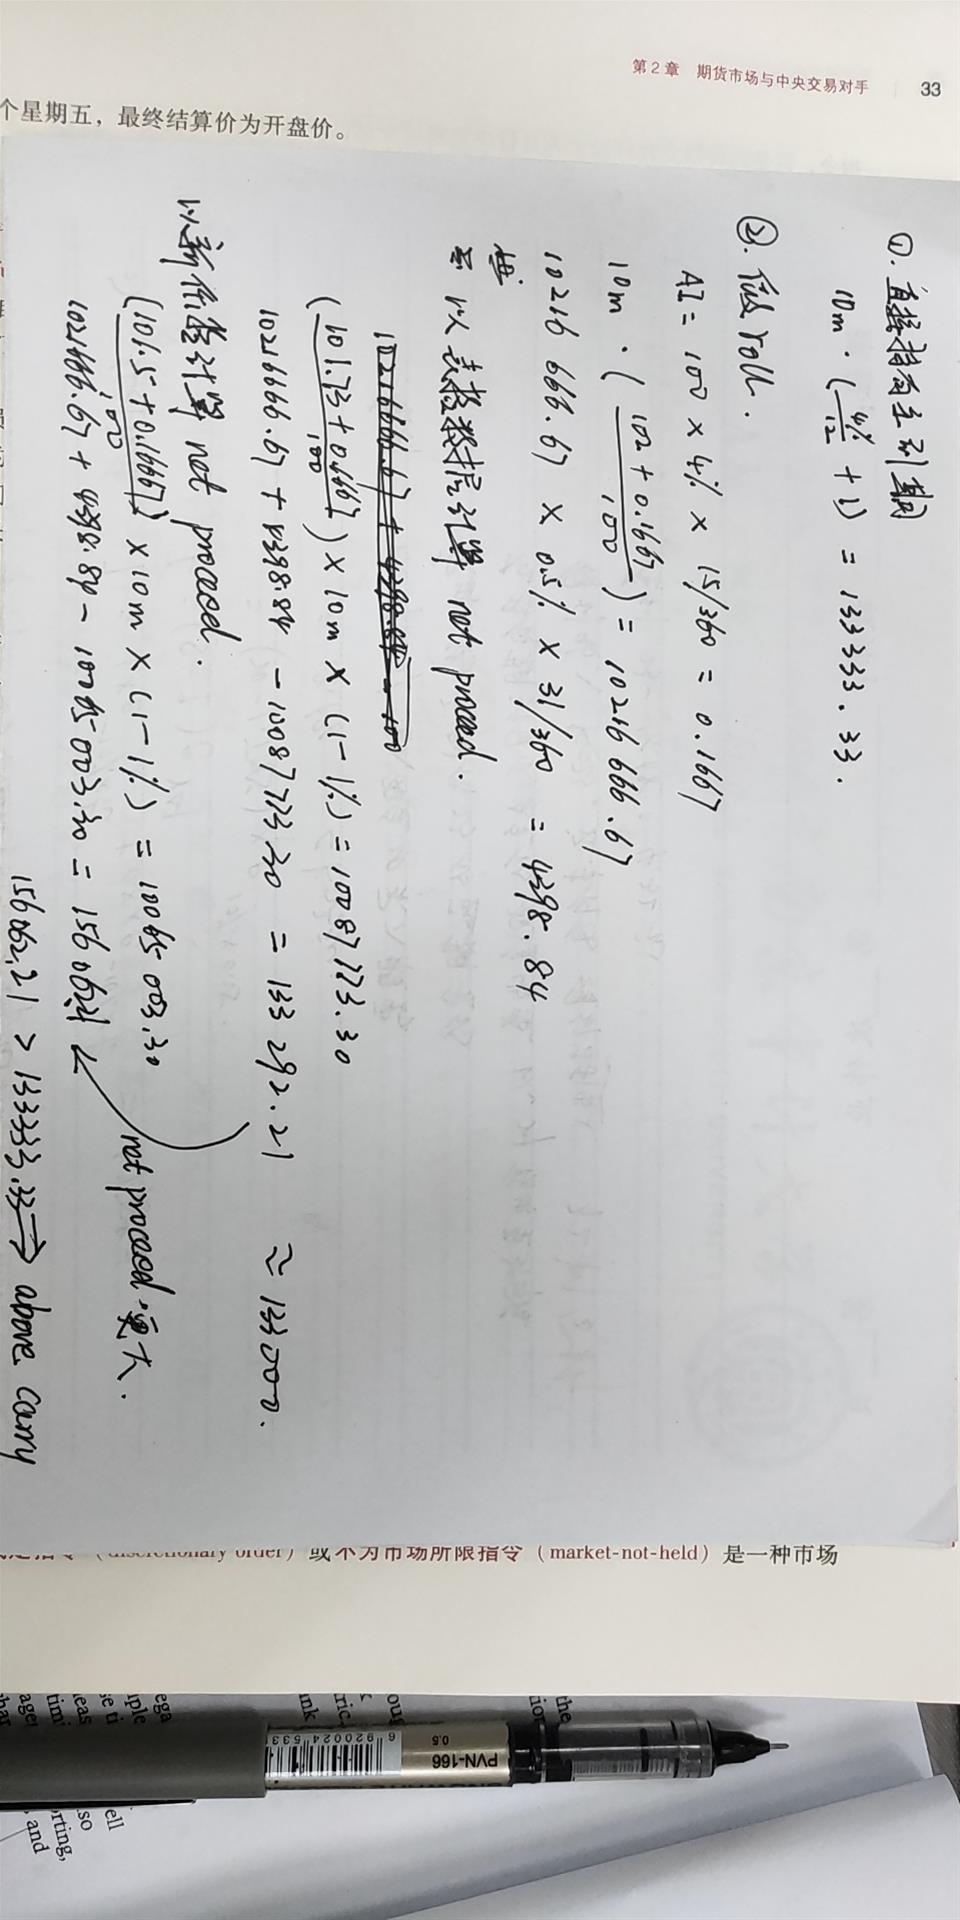 第2章 期货市场与中央交易对手 33
个星期五，最终结算价为开盘价。
①. 直接持有至到期
10m · (4%/12 + 1) = 133333.33.
②. 做 roll.
AI = 100 × 4% × 15/360 = 0.1667
10m · (102 + 0.1667/100) = 10216 666.67
10216 666.67 × 0.5% × 31/360 = 4398.84
以表格数据计算 net proceed.
(101.73 + 0.1667/100) × 10m × (1-1%) = 10087773.30
10216666.67 + 4398.84 - 10087773.30 = 133 292.21 ≈ 133000.
以新价格计算 net proceed.
(101.5 + 0.16667/100) × 10m × (1-1%) = 10065003.30
10216666.67 + 4398.84 - 10065003.30 = 156062.21
net proceed 更大.
156062.21 > 133333.33 ⇒ above carry
(discretionary order) 或不为市场所限指令 (market-not-held) 是一种市场
PVN-166
0.5
6 920024 533
the
ell
so
rting,
, and